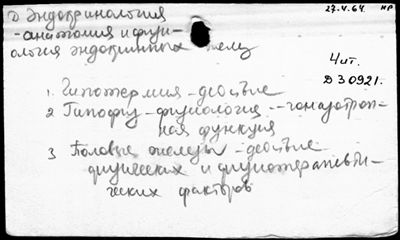 27.4.64. НР
2 Эндокринология
-анатомия и физи-
ология эндокринных желез
Чит.
Д30921.
1. Гипотермия-действие
2 Гипофиз-физиология--гонадотроп-
ная функция
3 Половые железы-действие
физических и физиотерапевти-
ческих факторов